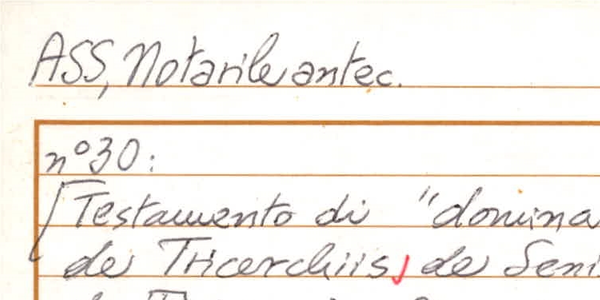 ASS, Notarile antec.
n° 30:
Testamento di "domina
de Tricerchiis, de Seni